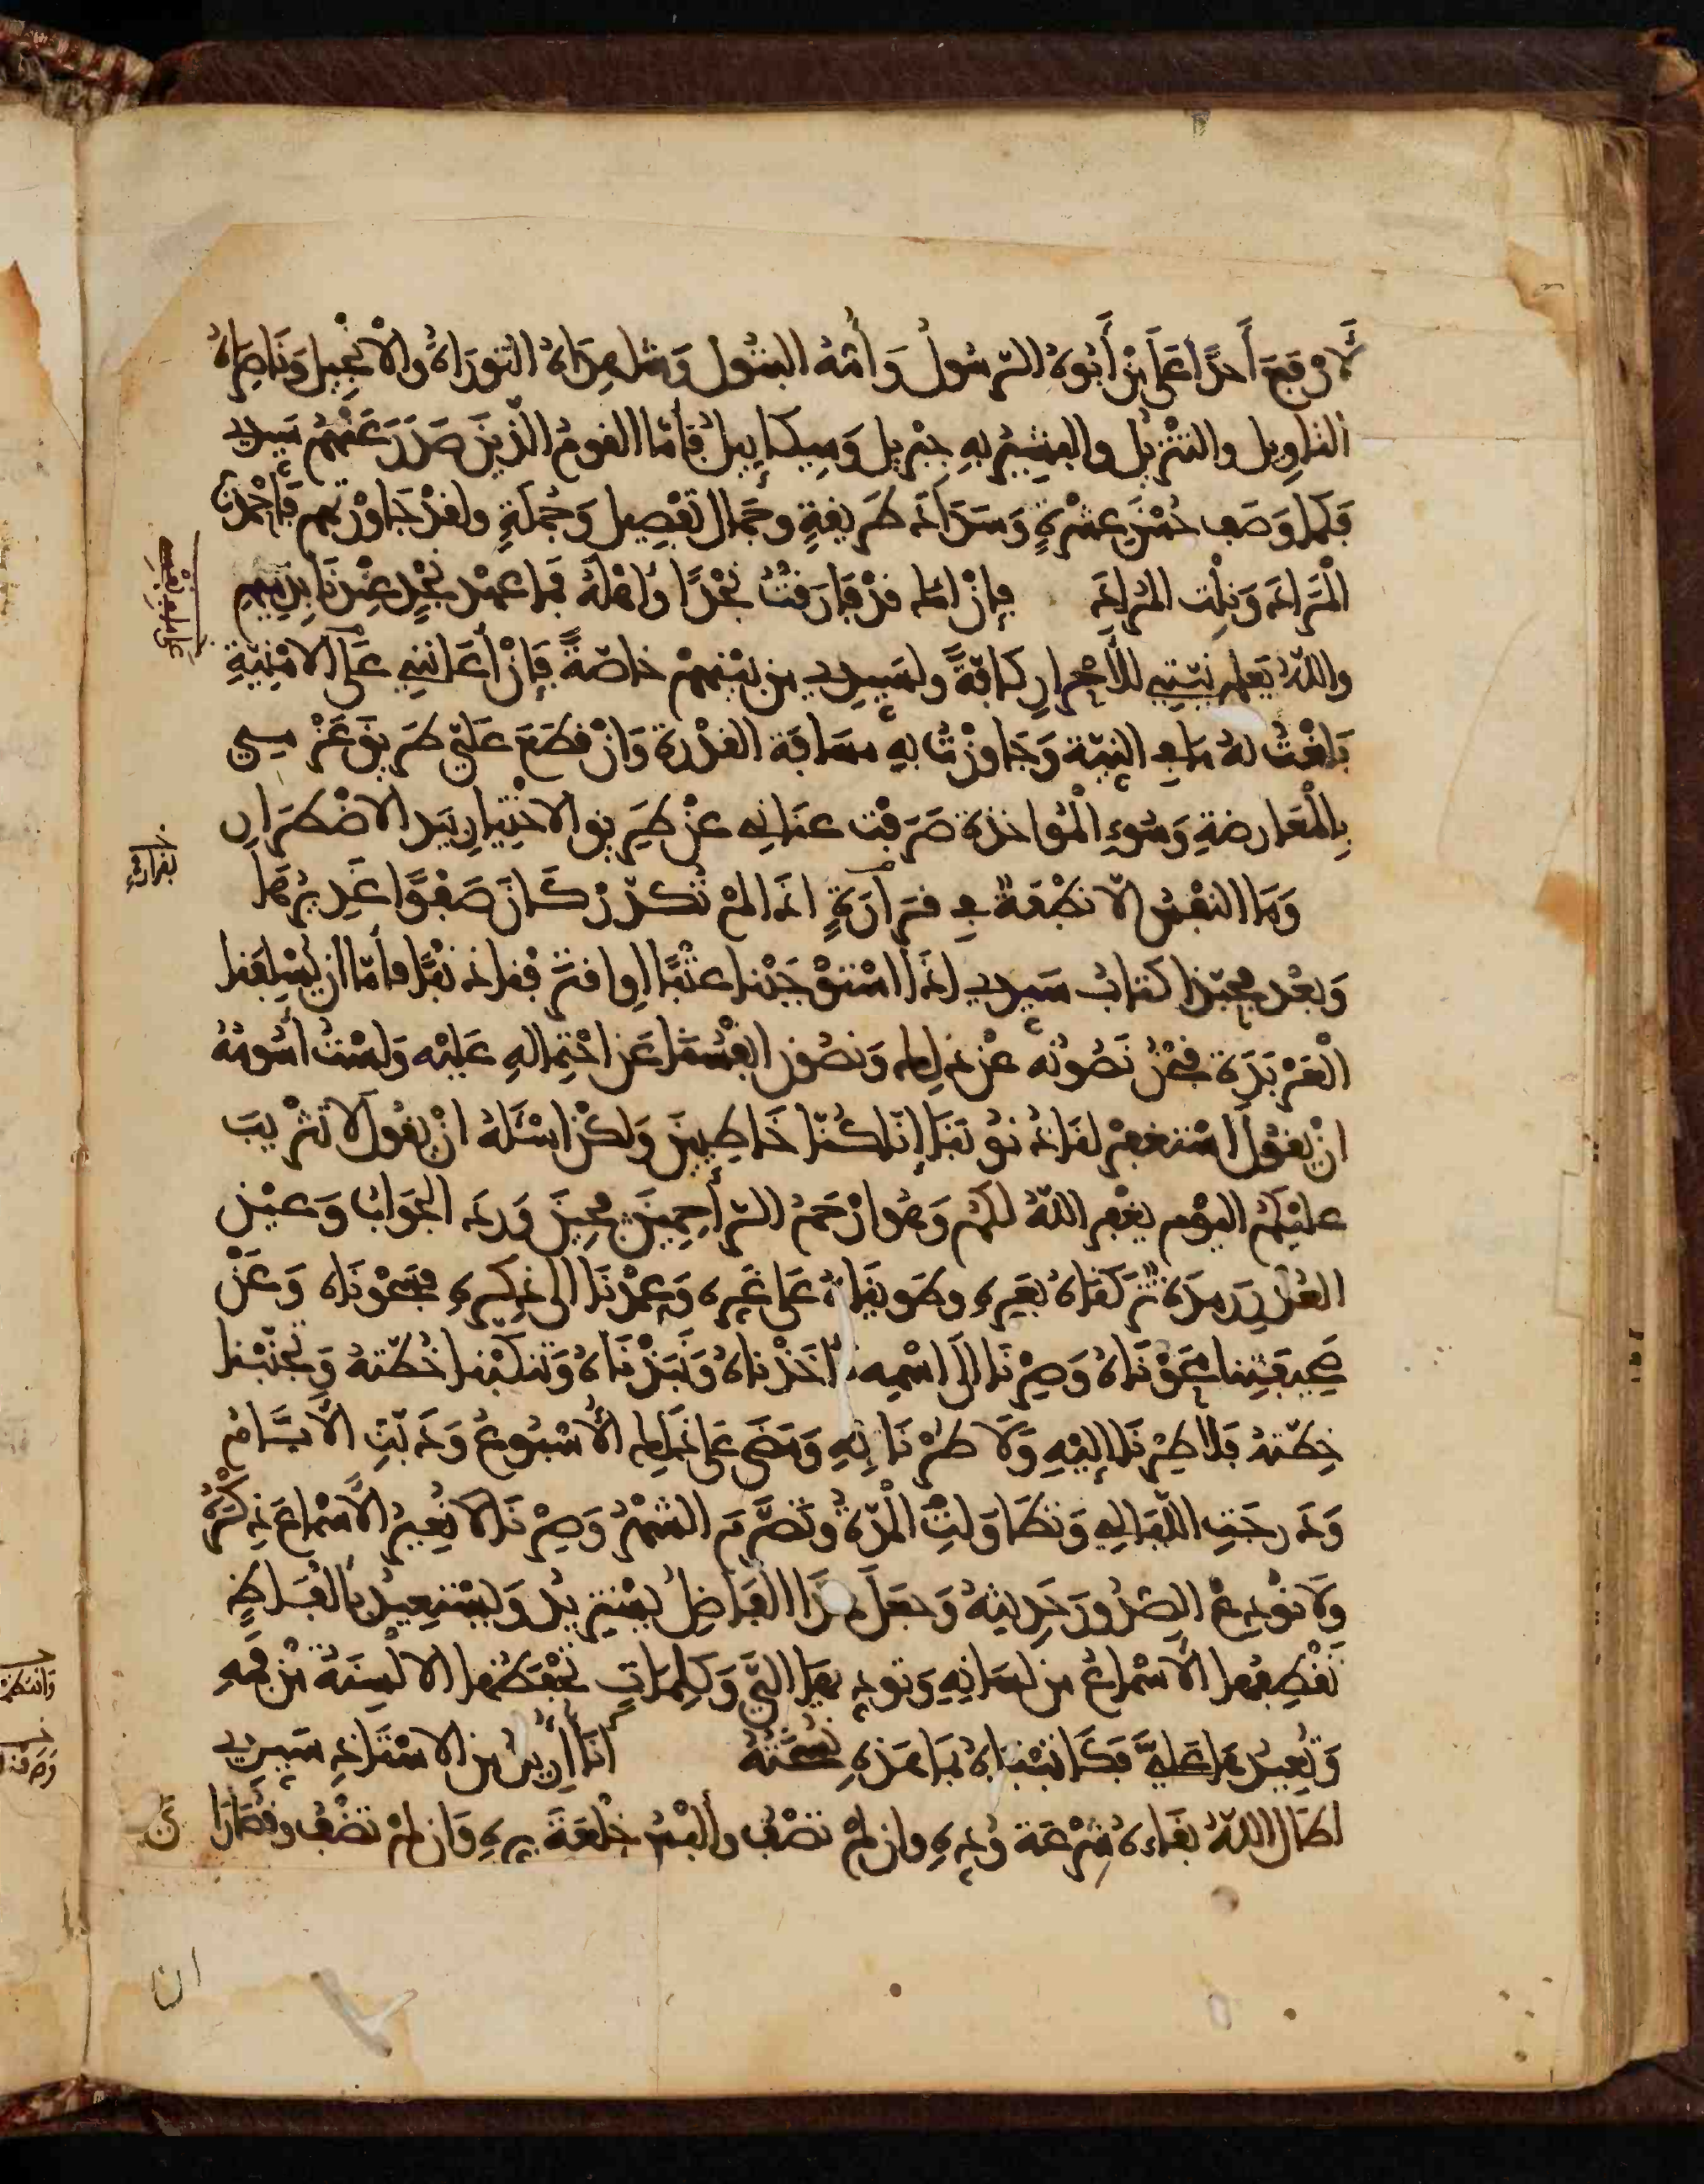 لَا وَقَعَ أَحَدًا عَلَى مَنْ أَبُوهُ الرّسُولُ وَأُمُّهُ البَتُولُ وَشَاهِدَاهُ التّورَاةُ والْإنْجِيلُ وَنَاصِرَاهُ
التأوِيل والتنْزِيلُ والبَشِيرُ بِهِ جِبْرِيل وَمِيكَايِيلُ فأمّا القومُ الّذِينَ صَدَرَ عَنْهُم سَيدي
فكما وَصَف حُسْنَ عِشْرَةٍ وَسَدَادَ طَرِيقةٍ وجَمَال تَفْصِيل وَجُمْلَةٍ ولقدْ جَاوَرْتهم فَأحْمَدتُ
الْمَرَادَ وَنِلْت المُرادَ فإنْ أكُ قدْ فَارَقْتُ نَجْدًا وأهْلَهُ فما عهْد نجْدٍ عِنْدنَا بِذَمِيمِ
واللّهُ يَعلم نيّتِي للأَحْرارِ كافّةً ولسَيدي من بَيْنِهمْ خاصّةً فإنْ أعَانَنِي عَلَى الامْنِيّةِ
بَلغْتُ لهُ مَا فِي النّيّة وَجَاوَزْتُ بِهِ مسَافَة القدْرة وَانْ قطَعَ عَليّ طَرِيقَ عَزْمِي
بِالْمُعَارضةِ وَسُوءِ الْمُؤاخذة صَرَفْت عنَانِي عنْ طَرِيق الاخْتِيارِ بيَد الاضْطِرارِ
وَمَا النفْسُ الّا نطْفَةٌ فِي قرَارَةٍ اذَا لمْ تُكدّرْ كَانَ صَفْوًا غَدِيرُهَا
وَبعْد فحبّذا كتابُ سَيدي اذَا اسْتوْجَبْنا عتْبًا او اقترَفْنا ذنْبًا فأمّا ان يُسْلِفَنا
الْعَرْبَدَة فنحْنُ نَصُونُه عنْ ذلِك وَنصُون انْفُسَنَا عَن احْتِمالِهِ عَليْه وَلسْتُ أسُومُهُ
انْ يقُولَ اسْتغفِرْ لنَا ذُنوبَنَا إنّا كُنّا خَاطِيينَ وَلكنْ اسْئَلهُ انْ يقُول لَا تَثْرِيبَ
عليْكُم اليوْم يغْفِر اللهُ لَكُم وَهُو أرْحَمُ الرّاحِمِينَ فحِينَ وَرَدَ الجَوابُ وَعيْن
العُذْرِ رَمِدَةٌ تَرَكْنَاهُ بِعَرِّهِ وطَويْنَاهُ عَلَى غَرِّهِ وَعِمدْنَا الى ذِكْرِهِ فسَحوْنَاه وَعَنْ
صَحِيفَتِنا محَوْنَاهُ وَصِرْنَا الَى اسْمِهِ فَأخَذْناهُ وَنَبَذْنَاهُ وَتنكّبْنا خُطّتَهُ وَتجنّبْنا
خِطّتهُ فَلا طِرْنَا إليْهِ وَلَا طُرْنَا بِهِ وَمَضَى عَلَى ذَلِك الأسْبُوعُ وَدَبّتِ الأيّامُ
وَدَرجَتِ اللّيَالِي وَتطَاوَلَتِ الْمُدّةُ وتَصَرَّمَ الشّهْرُ وَصِرْنَا لا نُعِيرُ الأسْمَاعَ ذِكْرَهُ
وَلَا نوْدِعُ الصّدُورَ حَدِيثَهُ وَجَعَلَ هذَا الفَاضِلُ يسْتَزِيدُ وَيسْتعِيدُ بألْفَاظٍ
تَقْطِفُها الأسْمَاعُ من لسَانِهِ وَتوَدّيهَا اليَّ وَكَلِمَاتٍ تَحْفَظُهَا الالْسِنَةُ منْ فمِهِ
وَتُعِيدُهَا عَليَّ فَكَاتبْنَاهُ بمَا هَذِهِ نُسْخَتُهُ انَا ارِدُ من الاسْتَاذ سَيدي
اطَال اللهُ بقَاءهُ شِرْعَة وُدّهِ وان لمْ تصْفُ وألْبسُ خِلْعَةَ بِرّهِ وَان لمْ تضْفُ وقُصَارَا
يَ
ان